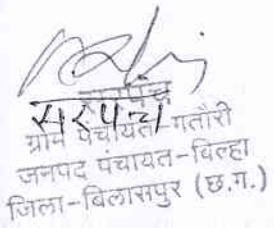 सरपंच
सरपंच
ग्राम पंचायत गतौरी
जनपद पंचायत-बिल्हा
जिला-बिलासपुर (छ.ग.)